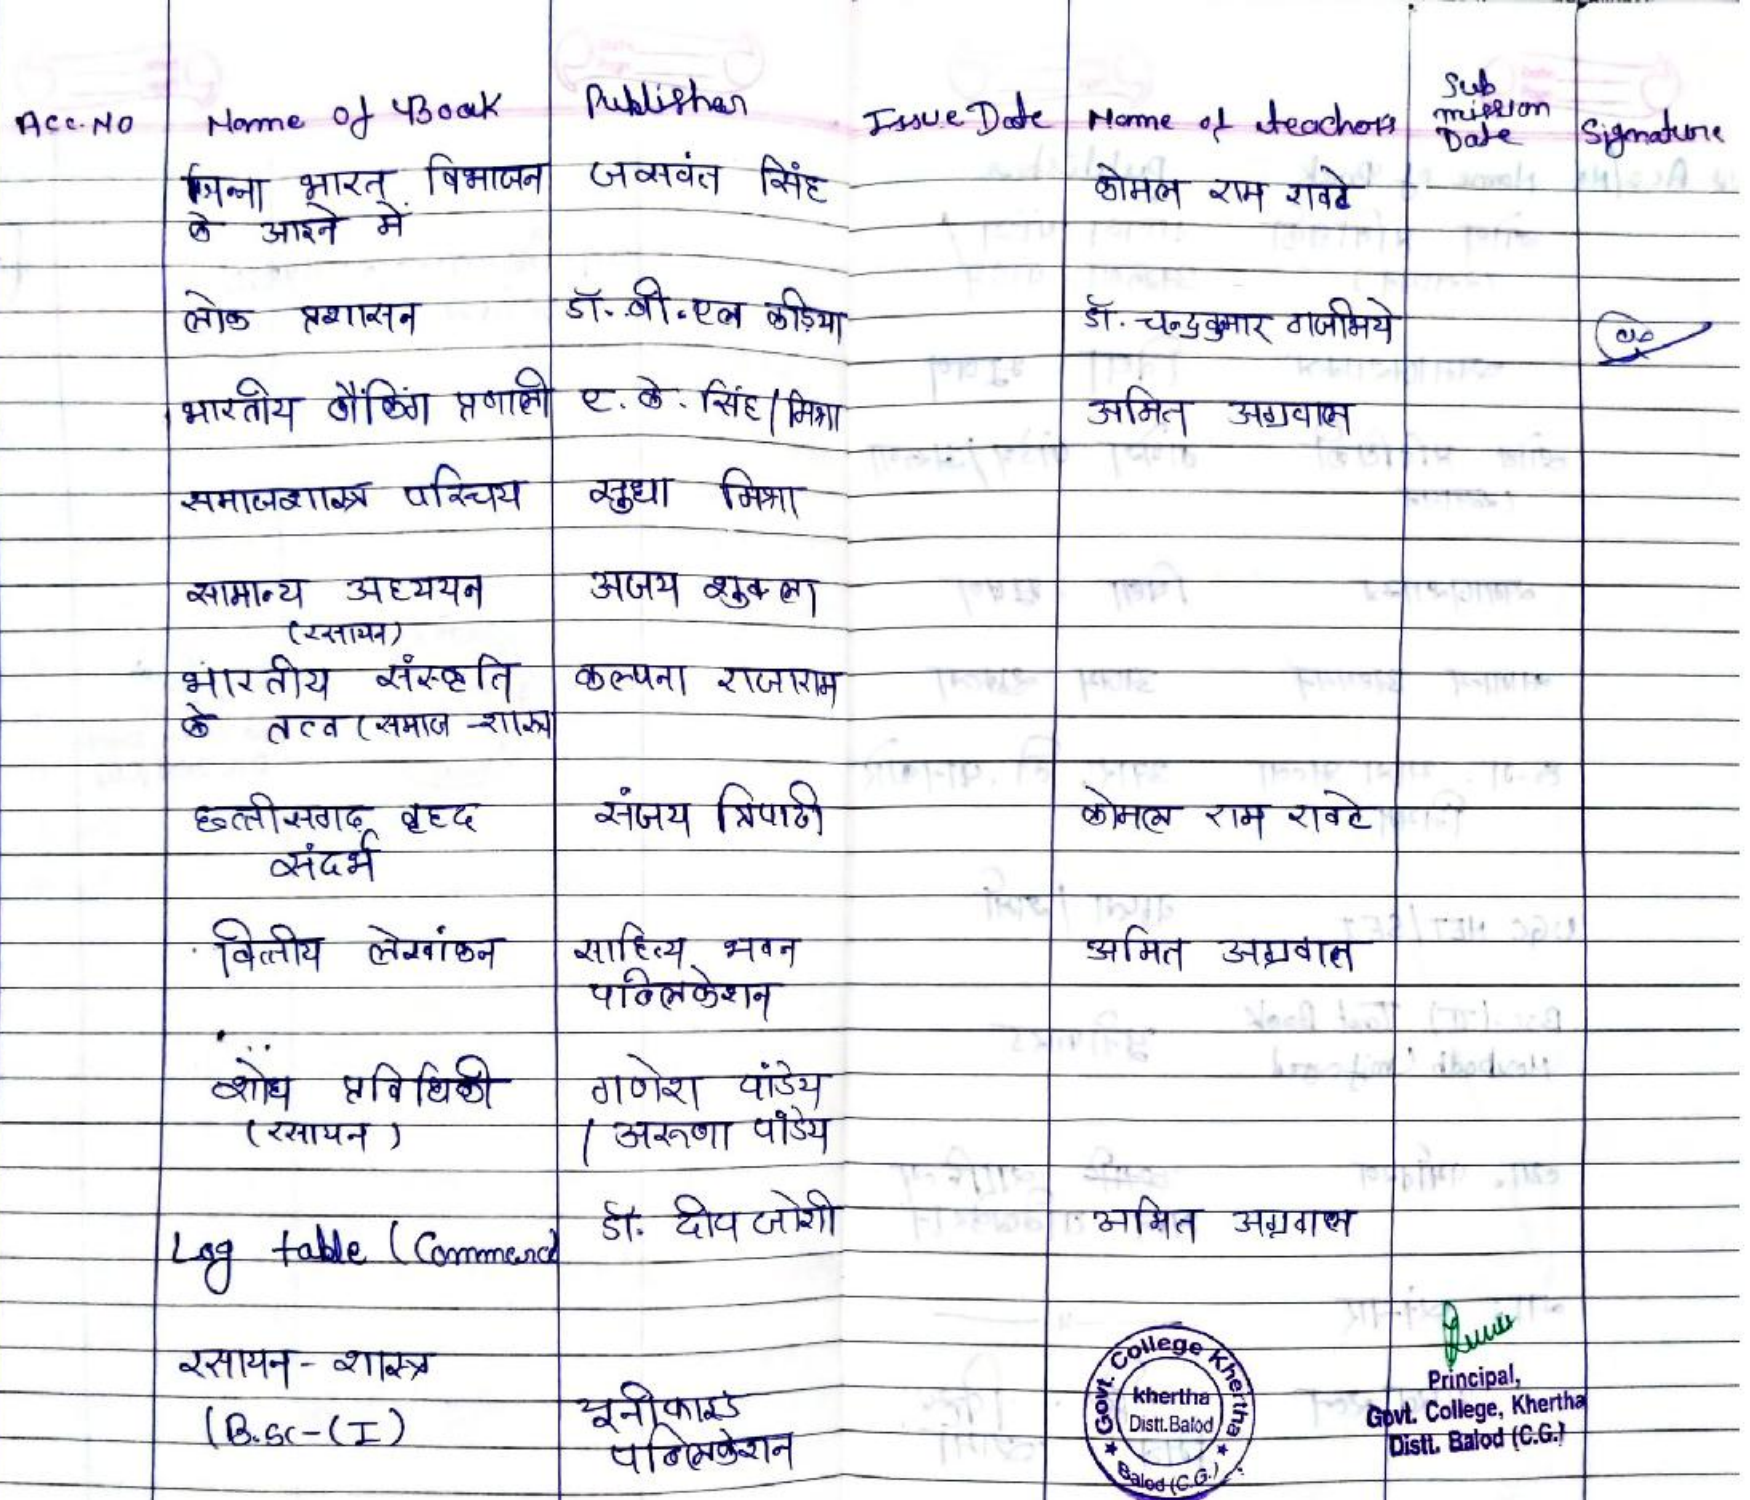 Acc.No Name of Book Publisher Issue Date Name of teachers Sub mission Date Signature
जिन्ना भारत विभाजन जसवंत सिंह कोमल राम रावटे
के आइने में
लोक प्रशासन डॉ. बी.एल फड़िया डॉ. चन्द्रकुमार गजीमये
भारतीय बैंकिंग प्रणाली ए. के. सिंह/मिश्रा अमित अग्रवाल
समाजशास्त्र परिचय सुधा मिश्रा
सामान्य अध्ययन अजय शुक्ला
(रसायन)
भारतीय संस्कृति कल्पना राजाराम
के तत्व (समाज-शास्त्र
छत्तीसगढ़ वृहद संजय त्रिपाठी कोमल राम रावटे
संदर्भ
वित्तीय लेखांकन साहित्य भवन अमित अग्रवाल
पब्लिकेशन
शोध प्रविधिकी गणेश पांडेय
(रसायन) / अरूणा पांडेय
Log table (Commerce डॉ. दीप जोशी अमित अग्रवाल
रसायन-शास्त्र
(B.sc-(I) यूनीफाइड
पब्लिकेशन
Govt. College Khertha
khertha
Distt.Balod
Balod (C.G.)
Principal,
Govt. College, Khertha
Distt. Balod (C.G.)